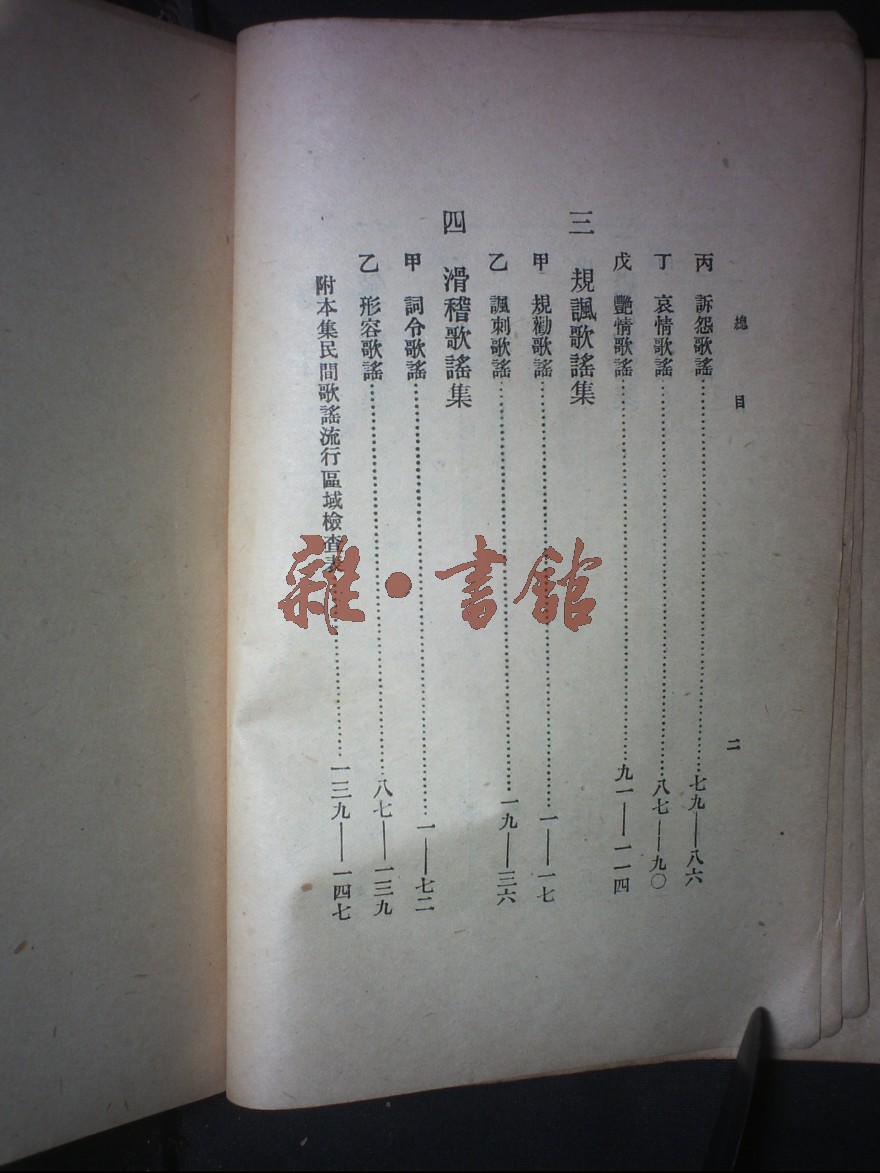 總目　二
丙　訴怨歌謠……七九——八六
丁　哀情歌謠……八七——九〇
戊　艷情歌謠……九一——一一四
三　規諷歌謠集
甲　規勸歌謠……一——一七
乙　諷刺歌謠……一九——三六
四　滑稽歌謠集
甲　詞令歌謠……一——七二
乙　形容歌謠……八七——一三九
附本集民間歌謠流行區域檢查表……一三九——一四七
雜·書館